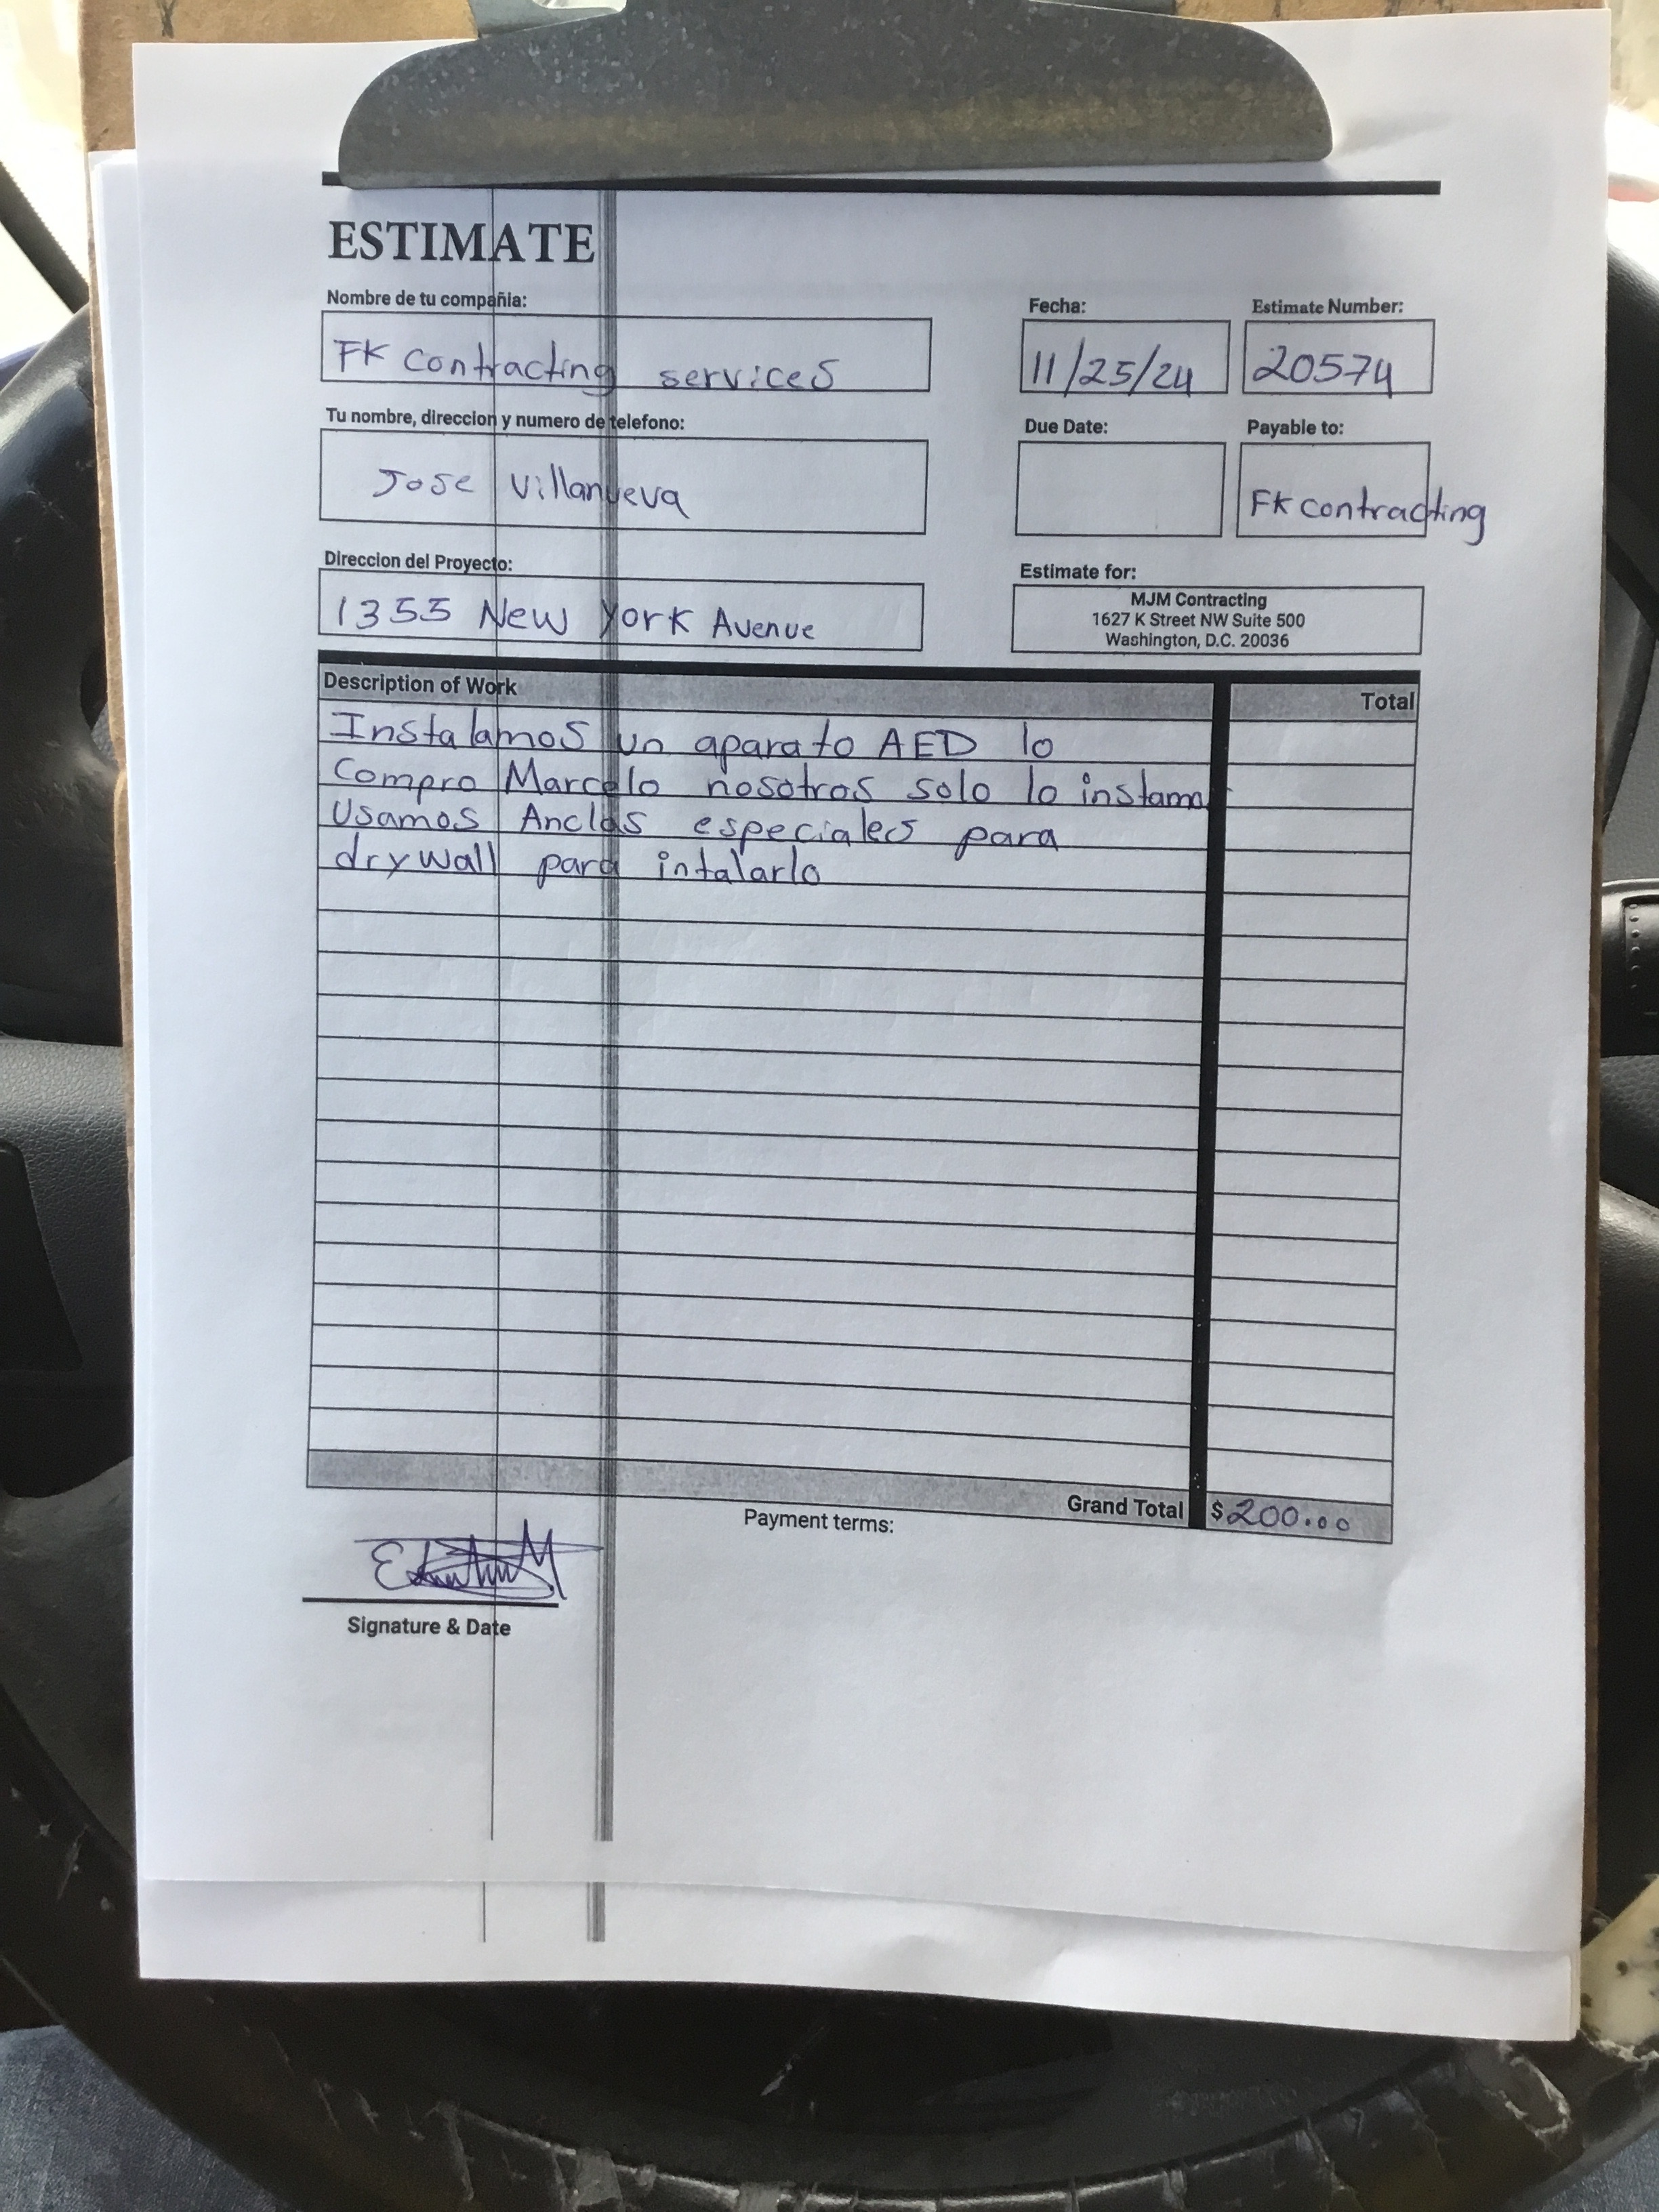 ESTIMATE
Nombre de tu compañia:
FK contracting services
Fecha:
11/25/24
Estimate Number:
20574
Tu nombre, direccion y numero de telefono:
Jose Villanueva
Due Date:
Payable to:
FK contracting
Direccion del Proyecto:
1355 New York Avenue
Estimate for:
MJM Contracting
1627 K Street NW Suite 500
Washington, D.C. 20036
Description of Work
Total
Instalamos un aparato AED lo
Compro Marcelo nosotros solo lo instama
Usamos Anclas especiales para
drywall para intalarlo
Grand Total
$200.00
Payment terms:
Signature & Date